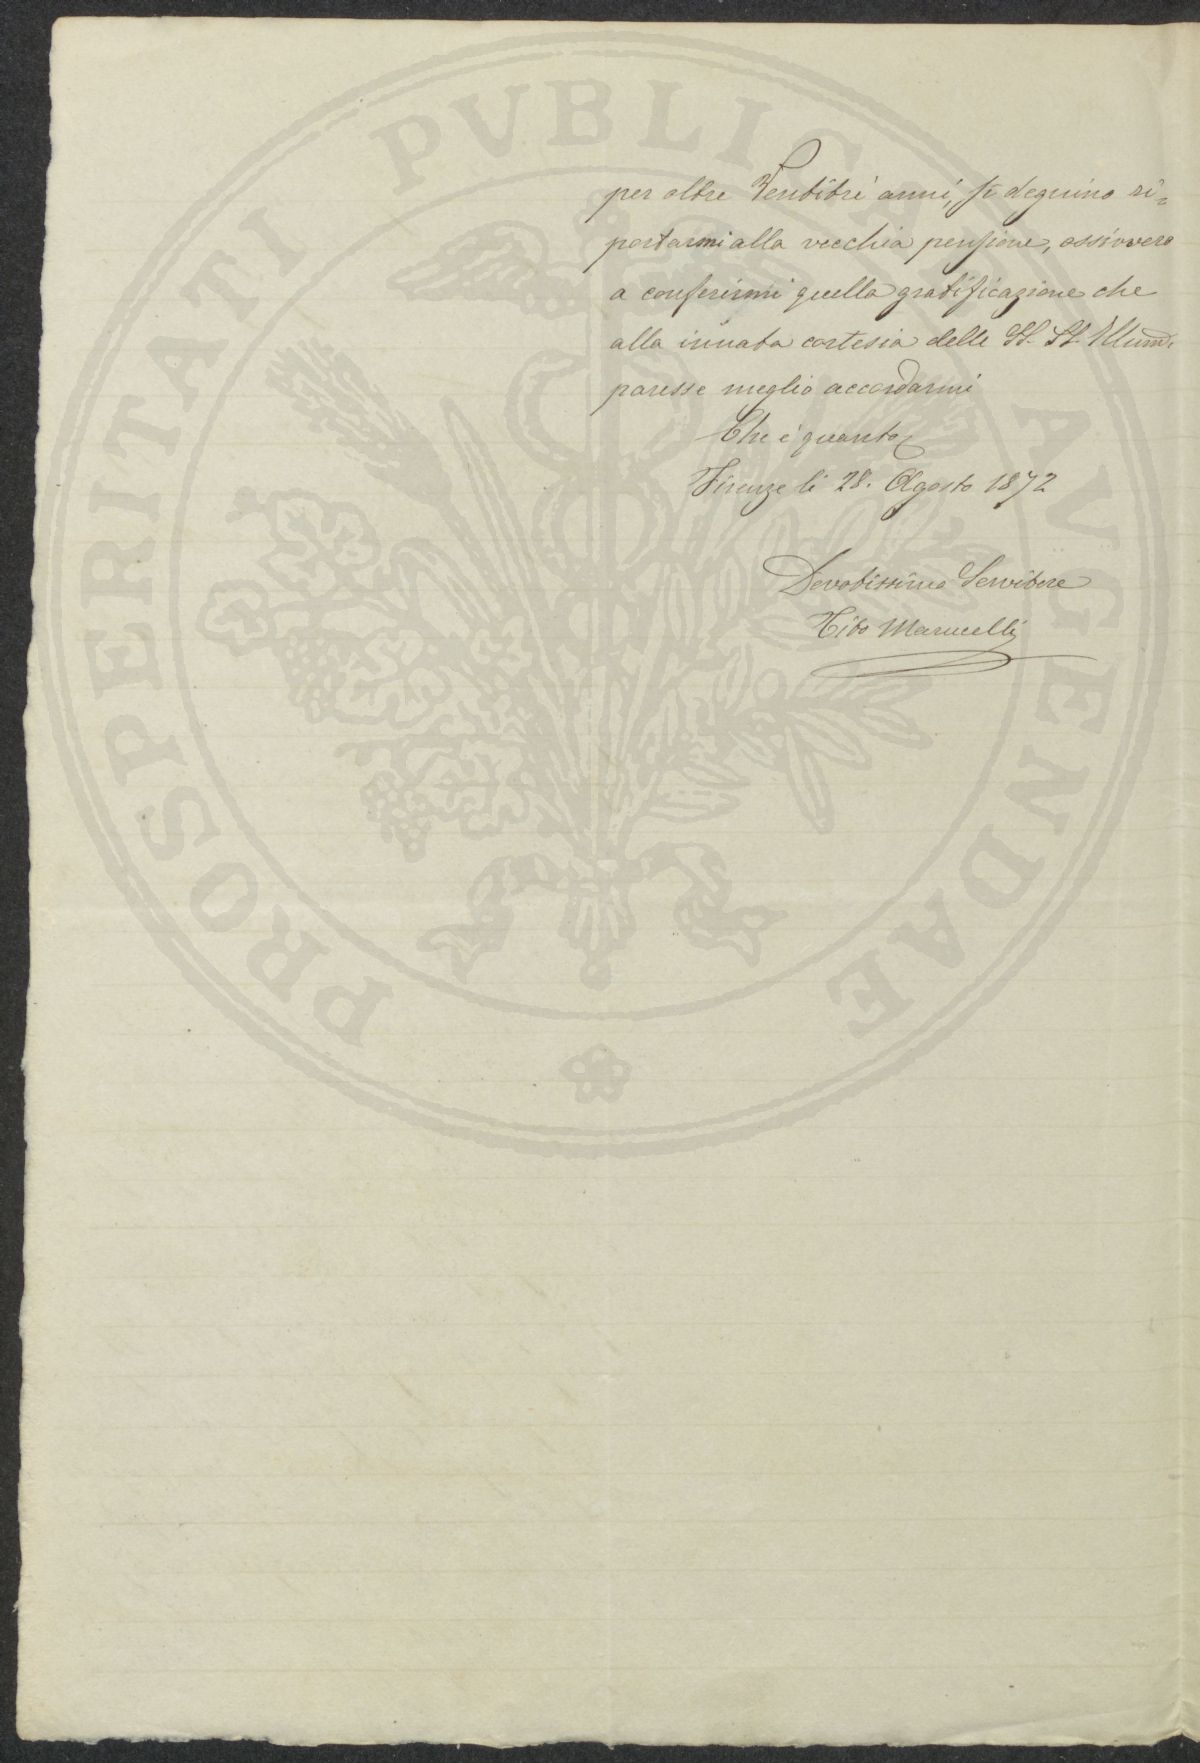 per oltre Ventitrè anni, si degnino ri=
portarmi alla vecchia pensione, ossivvero
a conferirmi quella gratificazione che
alla innata cortesia delle SS. LL. Illume.
paresse meglio accordarmi
Che è quanto
Firenze li 28. Agosto 1872
Devotissimo Servitore
Tito Marucelli
PROSPERITATI PVBLICAE AVGENDAE